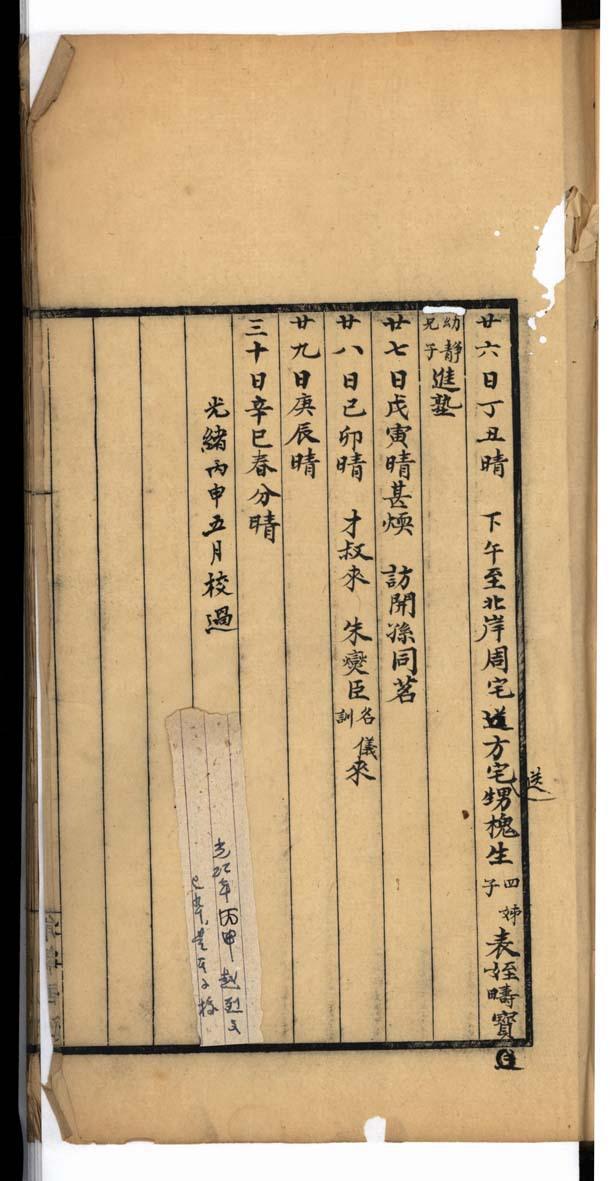 廿六日丁丑晴　下午至北岸周宅送方宅甥槐生四姊子表姪疇寶
幼静兄子進塾
廿七日戊寅晴甚煗　訪開孫同茗
廿八日己卯晴　才叔來　朱爕臣名訓儀來
廿九日庚辰晴
三十日辛巳春分晴
光緒丙申五月校過
送
丙申 趙烈文